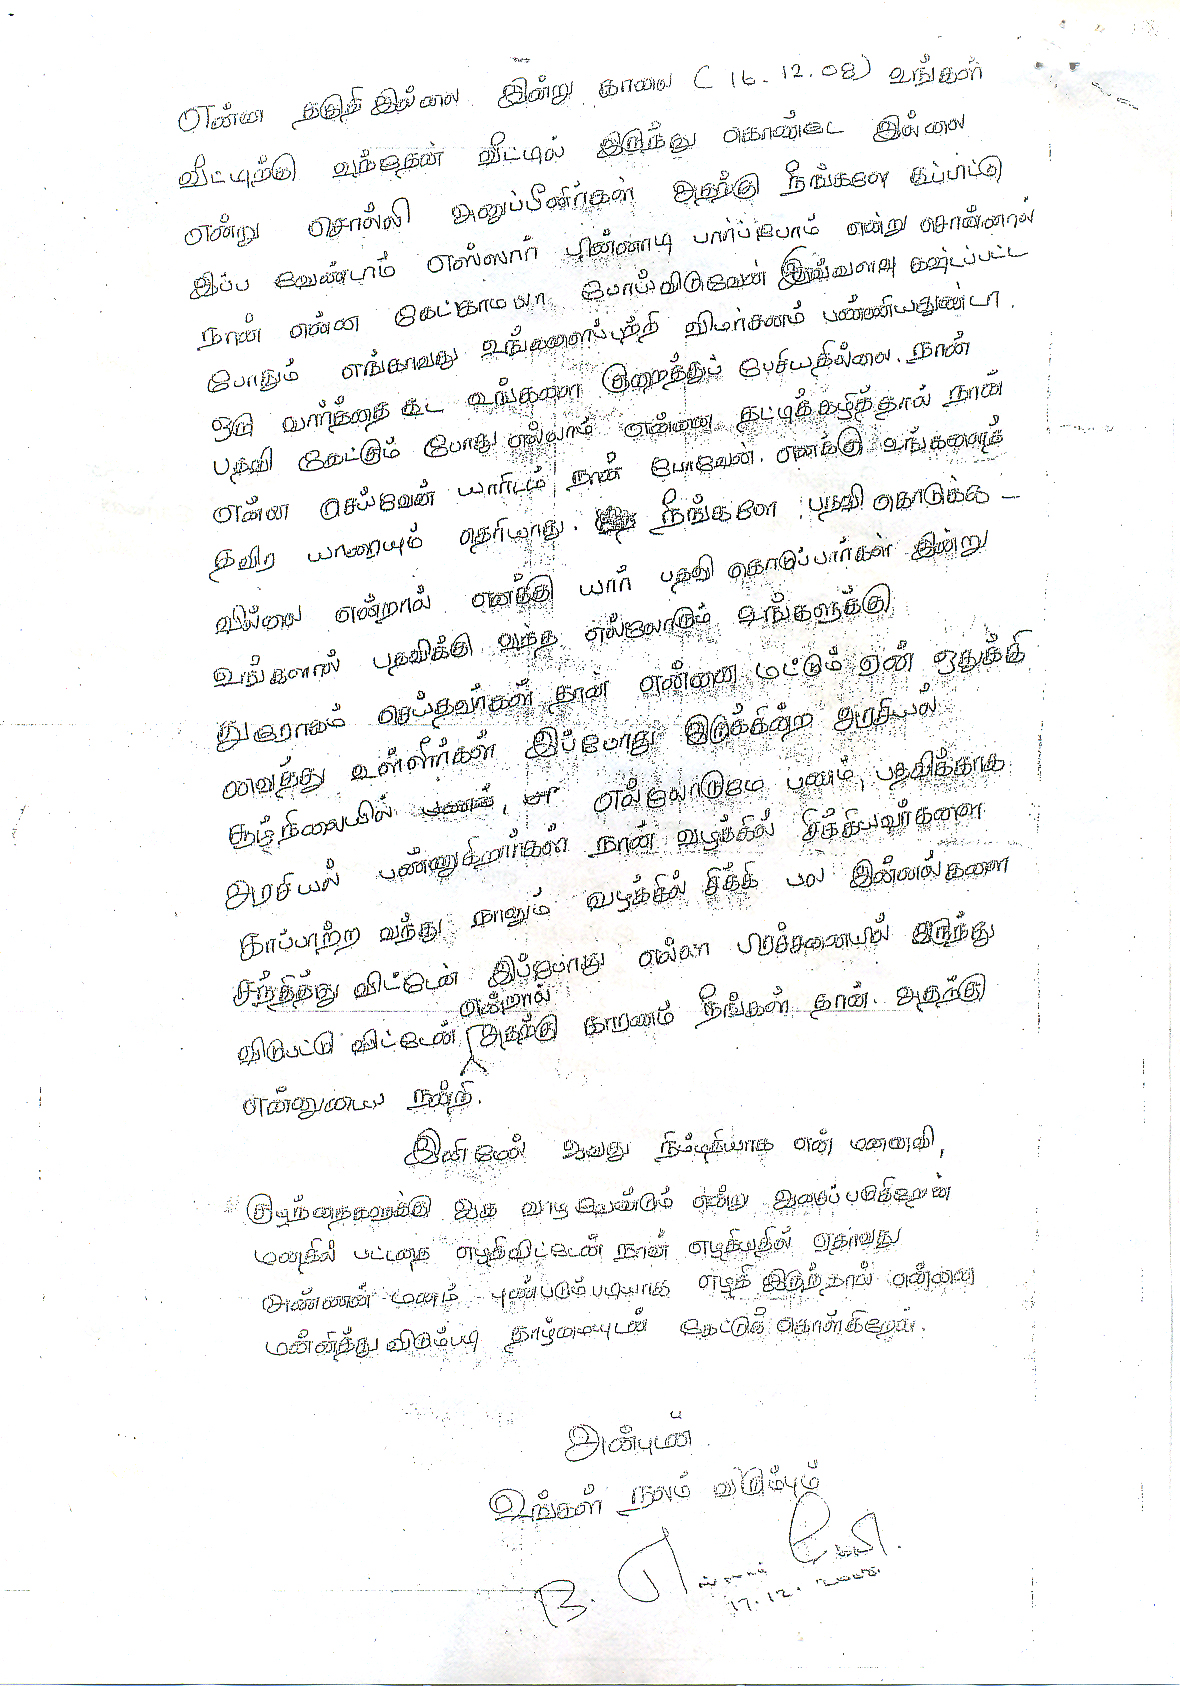 என்ன தகுதி இல்லை இன்று காலை (16.12.08) உங்கள்
வீட்டிற்கு வந்தேன் வீட்டில் இருந்து கொண்டே இல்லை
என்று சொல்லி அனுப்பினீர்கள் அதற்கு நீங்களே கூப்பிட்டு
இப்ப வேண்டாம் எஸ்ஸார் பின்னாடி பார்ப்போம் என்று சொன்னால்
நான் என்ன கேட்காமலா போய்விடுவேன் இவ்வளவு கஷ்டப்பட்ட
போதும் எங்காவது உங்களைப்பற்றி விமர்சனம் பண்ணியதுண்டா.
ஒரு வார்த்தை கூட உங்களை குறைத்துப் பேசியதில்லை. நான்
பதவி கேட்கும் போது எல்லாம் என்னை தட்டிக்கழித்தால் நான்
என்ன செய்வேன் யாரிடம் நான் போவேன். எனக்கு உங்களைத்
தவிர யாரையும் தெரியாது. நீங்களே பதவி கொடுக்க -
வில்லை என்றால் எனக்கு யார் பதவி கொடுப்பார்கள் இன்று
உங்களால் பதவிக்கு வந்த எல்லோரும் உங்களுக்கு
துரோகம் செய்தவர்கள் தான் என்னை மட்டும் ஏன் ஒதுக்கி
வைத்து உள்ளீர்கள் இப்போது இருக்கின்ற அரசியல்
சூழ்நிலையில் பணம், எல்லோருமே பணம், பதவிக்காக
அரசியல் பண்ணுகிறார்கள் நான் வழக்கில் சிக்கியவர்களை
காப்பாற்ற வந்து நானும் வழக்கில் சிக்கி பல இன்னல்களை
சந்தித்து விட்டேன் இப்போது எல்லா பிரச்சனையில் இருந்து
விடுபட்டு விட்டேன் என்றால் அதற்கு காரணம் நீங்கள் தான். அதற்கு
என்னுடைய நன்றி.
இனிமேல் ஆவது நிம்மதியாக என் மனைவி,
குழந்தைகளுக்கு ஆக வாழ வேண்டும் என்று ஆசைப்படுகிறேன்
மனதில் பட்டதை எழுதிவிட்டேன் நான் எழுதியதில் ஏதாவது
அண்ணன் மனம் புண்படும்படியாக எழுதி இருந்தால் என்னை
மன்னித்து விடும்படி தாழ்மையுடன் கேட்டுக் கொள்கிறேன்.
அன்புடன்
உங்கள் நலம் விரும்பும்
B. எஸ்ஸார் கோபி.
17.12.2008